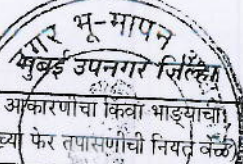 नगर भू-मापन
मुंबई उपनगर जिल्हा
आकारणीचा किंवा भाड्याची
च्या फेर तपासणीची नियत वेळ